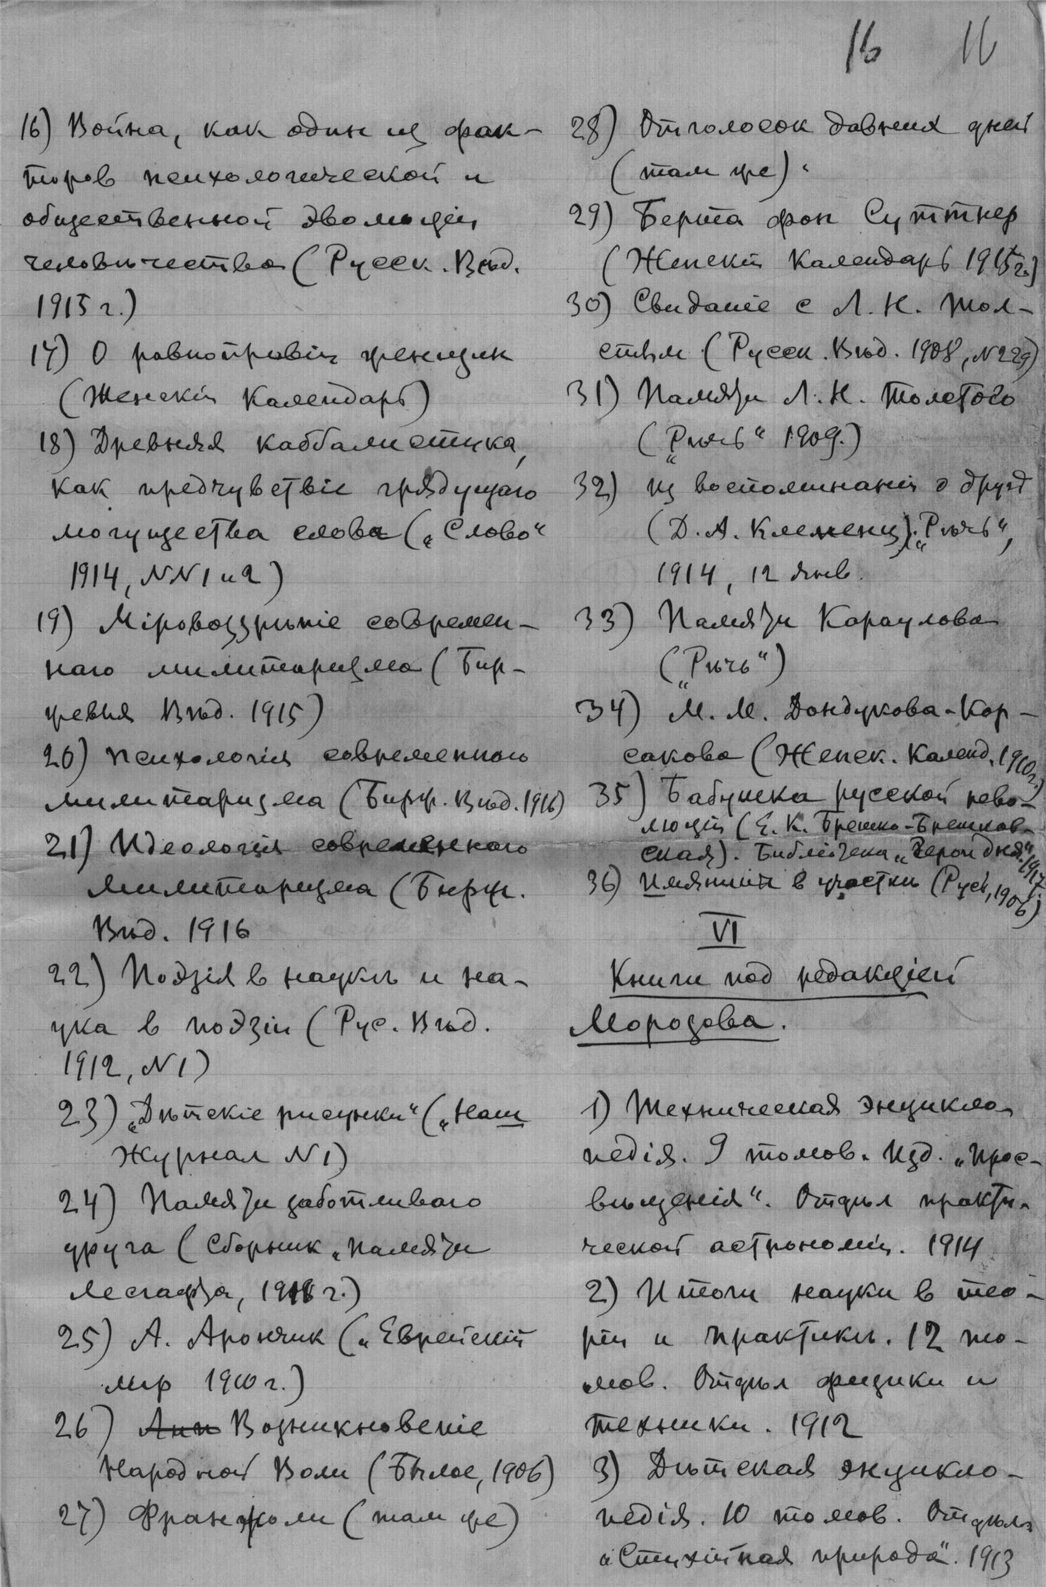 16 16
16) Война, как один из фак-
торов психологической и
общественной эволюціи
человѣчества (Русск. Вѣд.
1915 г.)
17) О равноправіи женщин
(Женскій Календарь)
18) Древняя каббалистика,
как предчувствіе грядущаго
могущества слова („Слово"
1914, NN 1 и 2)
19) Міровоззрѣніе современ-
наго милитаризма (Бир-
жевыя Вѣд. 1915)
20) Психологія современнаго
милитаризма (Бирж. Вѣд. 1916)
21) Идеологія современнаго
милитаризма (Бирж.
Вѣд. 1916
22) Поэзія в наукѣ и на-
ука в поэзіи (Рус. Вѣд.
1912, N 1)
23) „Дѣтскіе рисунки" („Наш
Журнал N 1)
24) Памяти заботливаго
друга (Сборник „Памяти
Лесгафта, г.)
25) А. Арончик („Еврейскій
мир 1910 г.)
26) Возникновеніе
Народной Воли (Былое, 1906)
27) Франжоли (там же)
28) Отголосок давних дней
(там же).
29) Берта фон Суттнер
(Женскій Календарь 1915 г.)
30) Свиданіе с Л. Н. Тол-
стым (Русск. Вѣд. 1908, N 229)
31) Памяти Л. Н. Толстого
(„Рѣчь" 1909.)
32) Из воспоминаній о другѣ
(Д. А. Клеменц). „Рѣчь",
1914, 12 янв.
33) Памяти Караулова
(„Рѣчь")
34) М. М. Дондукова-Кор-
сакова (Женск. Календ. 1910 г.)
35) Бабушка русской рево-
люціи (Е. К. Брешко-Брешков-
ская). Библіотека „Герои дня". 1917
36) Имянины в участкѣ (Русь, 1906)
VI
Книги под редакціей
Морозова.
1) Техническая энцикло-
педія. 9 томов. Изд. „Прос-
вѣщенія". Отдѣл практи-
ческой астрономіи. 1914
2) Итоги науки в тео-
ріи и практикѣ. 12 то-
мов. Отдѣл физики и
техники. 1912
3) Дѣтская энцикло-
педія. 10 томов. Отдѣл
„Стихійная природа". 1913